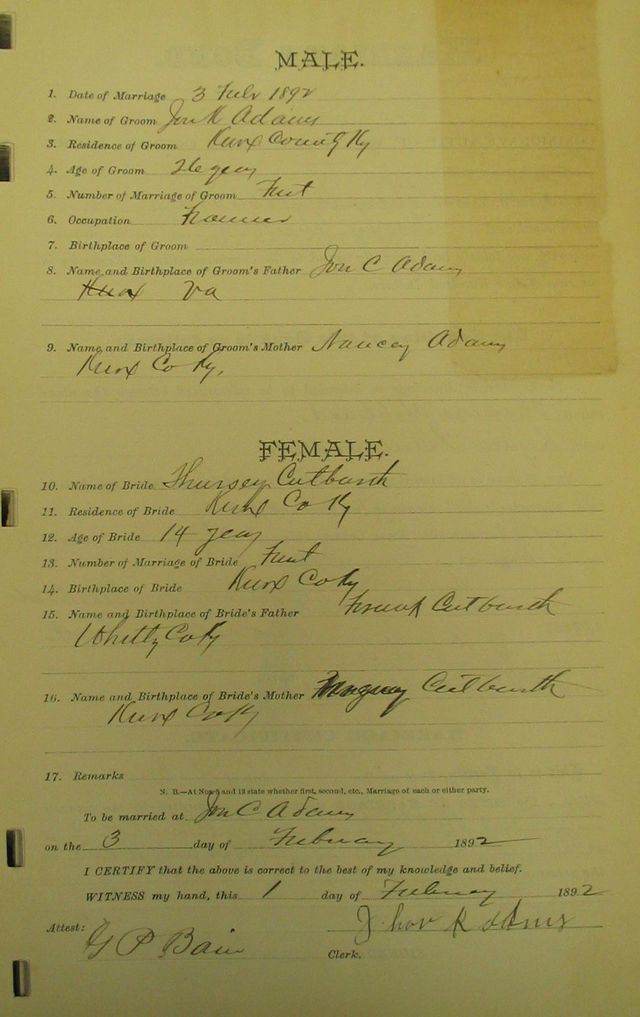 MALE.
1. Date of Marriage 3 Febr 1892
2. Name of Groom Jon K Adams
3. Residence of Groom Knox County Ky
4. Age of Groom 26 years
5. Number of Marriage of Groom First
6. Occupation Farmer
7. Birthplace of Groom
8. Name and Birthplace of Groom's Father Jon C Adams
Knox Va
9. Name and Birthplace of Groom's Mother Nancey Adams
Knox Co Ky.
FEMALE.
10. Name of Bride Thursey Cutbirth
11. Residence of Bride Knox Co Ky
12. Age of Bride 14 years
13. Number of Marriage of Bride First
14. Birthplace of Bride Knox Co Ky
15. Name and Birthplace of Bride's Father Frank Cutbirth
Whitly Co Ky
16. Name and Birthplace of Bride's Mother Cutbirth
Knox Co Ky
17. Remarks
N. B.—At Nos. 5 and 13 state whether first, second, etc., Marriage of each or either party.
To be married at Jon C Adams
on the 3 day of February 1892
I CERTIFY that the above is correct to the best of my knowledge and belief.
WITNESS my hand, this 1 day of February 1892
Adams
Attest:
G P Bain
Clerk.